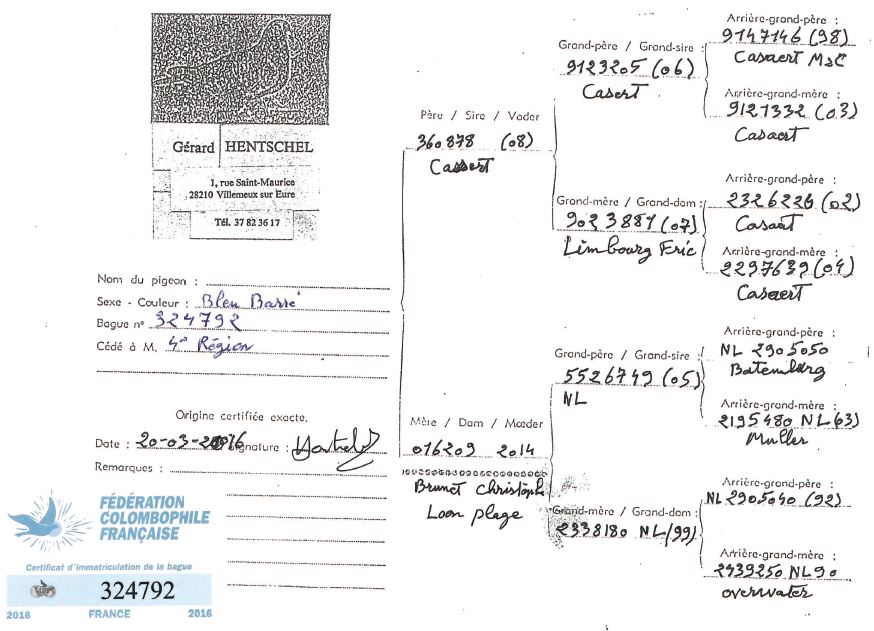 Gérard HENTSCHEL
1, rue Saint-Maurice
28210 Villemeux sur Eure
Tél. 37 82 36 17
Nom du pigeon :
Sexe - Couleur : Bleu Barré
Bague n° 324792
Cédé à M. 4e Région
Origine certifiée exacte.
Date : 20-03-2016 Signature :
Remarques :
FÉDÉRATION
COLOMBOPHILE
FRANÇAISE
Certificat d'immatriculation de la bague
324792
2016 FRANCE 2016
Père / Sire / Vader
360878 (08)
Cassert
Mère / Dam / Moeder
016209 2014
Brunet Christophe
Loon plage
Grand-père / Grand-sire :
9123205 (06)
Casert
Grand-mère / Grand-dam :
9023881 (07)
Limbourg Eric
Grand-père / Grand-sire :
5526749 (05)
NL
Grand-mère / Grand-dam :
2338180 NL/99)
Arrière-grand-père :
9147146 (98)
Casaert M&C
Arrière-grand-mère :
9127332 (03)
Casaert
Arrière-grand-père :
2326226 (02)
Casaert
Arrière-grand-mère :
2297639 (04)
Casaert
Arrière-grand-père :
NL 2905050
Batemburg
Arrière-grand-mère :
2195480 NL (03)
Muller
Arrière-grand-père :
NL 2905040 (92)
Arrière-grand-mère :
2439250 NL 90
overwater